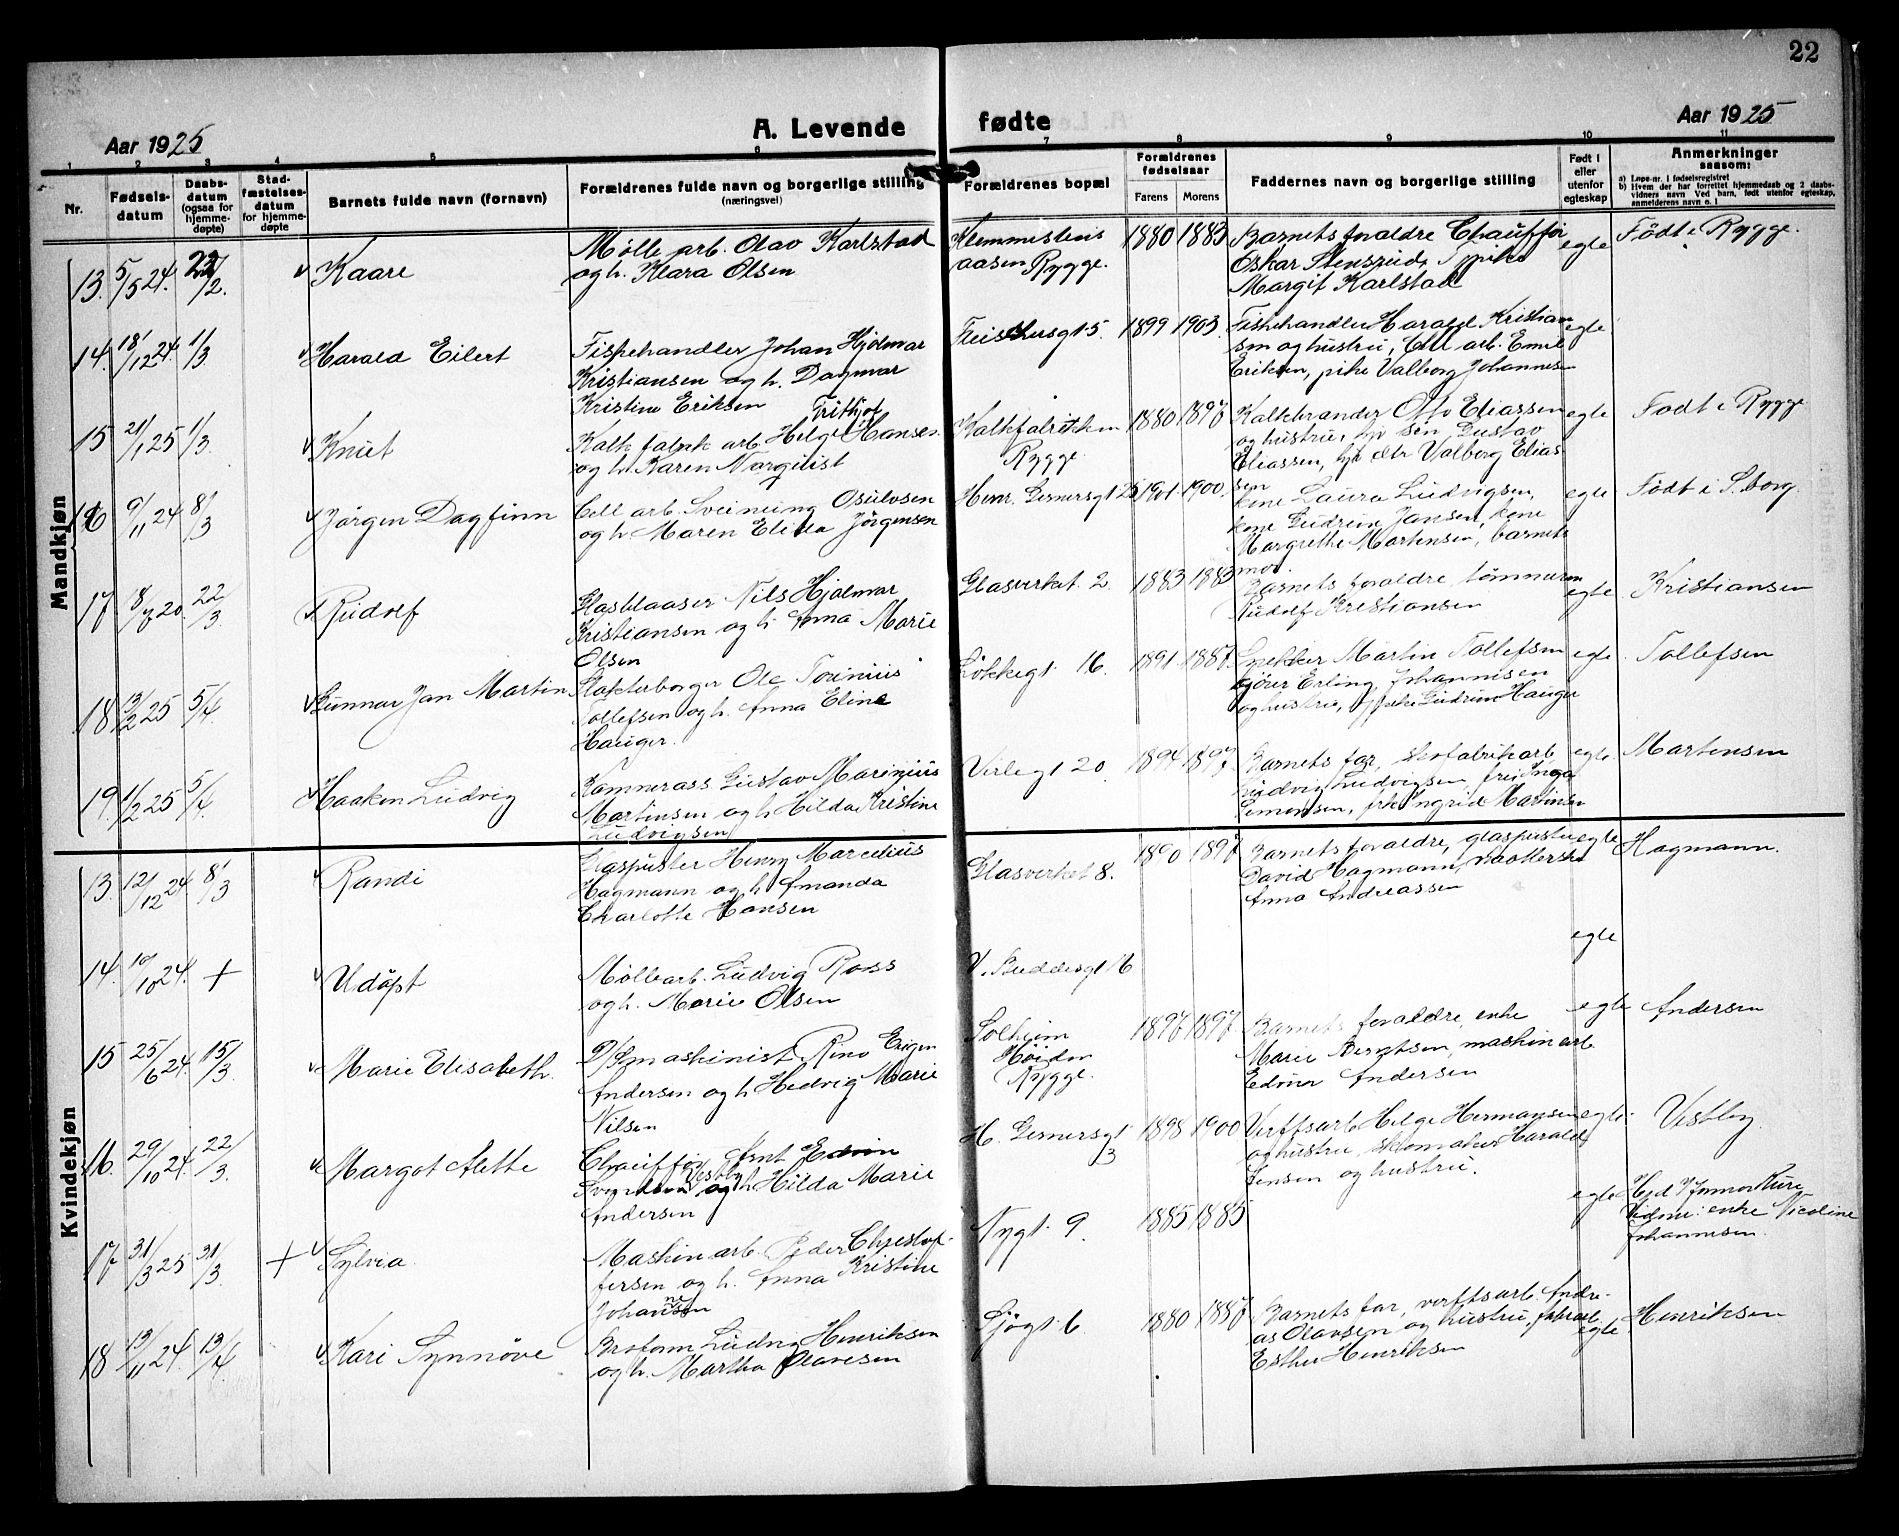 22
Aar 1925
A. Levende fødte
Aar 1925
1 2 3 4 5 6 7 8 9 10 11
Nr.
Fødsels-
datum
Daabs-
datum
(ogsaa for
hjemme-
døpte)
Stad-
fæstelses-
datum
for hjemme-
døpte
Barnets fulde navn (fornavn)
Forældrenes fulde navn og borgerlige stilling
(næringsvei)
Forældrenes bopæl
Forældrenes
fødselsaar
Farens Morens
Faddernes navn og borgerlige stilling
Født i
eller
utenfor
egteskap
Anmerkninger
saasom:
a) Løpe-nr. i fødselsregistret
b) Hvem der har forrettet hjemmedaab og 2 daabs-
vidners navn Ved barn, født utenfor egteskap,
anmelderens navn o. l.
Mandkjøn
13. 5/5 24. 22/2. Kaare
Mølle arb. Olav Karlstad
og h. Klara Olsen
aasen Rygge.
1880 1883
Barnets foraldre Chauffør
Oskar Stensrud, pike
Margit Karlstad
egte
Født i Rygge.
14. 18/12 24. 1/3 Harald Eilert
Fiskehandler Johan Hjalmar
Kristiansen og h. Dagmar
Kristine Eriksen
1899 1903.
Fiskehandler Harald Kristian
sen og hustru, Cell arb. Emil
Eriksen, pike Valborg Johannes
egte
15 21/1 25 1/3. Knut
Fritjof
Kalk fabrik arb. Helge Hansen
og h. Karen Norqvist
Kalkfabrikken
Rygge.
1880 1897
Kalkbrander Otto Eliassen
og hustru, sön, Gustav
Eliassen, dtr Valborg Elias
sen
egte
Født i Rygge
16 9/11 24 8/3 Jørgen Dagfinn
Cell arb. Sveinung Osulvsen
og h Maren Elida Jørgensen
Henr. Gernersgt 25
1901. 1900.
kone Laura Ludvigsen,
kone Gudrun Jansen, kone
Margrethe Martensen, barnets
mor.
egte
Født i S.borg.
17 8/7 20. 22/3. Rudolf
Glasblaaser Nils Hjalmar
Kristiansen og h. Anna Marie
Olsen
Glasverket 2.
1883 1883
Barnets foraldre, tømmerm
Rudolf Kristiansen
egte
Kristiansen
18 3/2 25 5/4. Gunnar Jan Martin
Ole Torinius
Tollefsen og h. Anna Eline
Hauger.
Løkkegt. 16.
1891. 1887.
Snekker Martin Tollefsen
Erling Johannisen
og hustru, pike Gudrun Hauger
egte.
Tollefsen
19. 1/2 25 5/4. Haakon Ludvig
Kamnerass Gustav Marinius
Martinsen og h Hilda Kristine
Ludvigsen
Verlegt 20.
1894 1897
Barnets far, skofabrikarb.
Ludvig Ludvigsen, frk Inga
Simonsen, frk Ingrid Martinsen
egte.
Martensen
Kvindekjøn
13. 12/12 24 8/3 Randi
Glaspuster Henry Marcelius
Hagmann og h Amanda
Charlotte Hansen
Glasverket 8.
1890 1897
Barnets foraldre, glaspuster
David Hagmann,
Anna Andreassen
egte
Hagmann.
14. 10/10 24. + Udøpt
Møllearb. Ludvig Ross
og h. Marie Olsen
V. Buddesgt 16
egte
15 25/6 24. 15/3. Marie Elisabeth.
D/S maskinist Rino Eugen
Andersen og h Hedvig Marie
Nilsen
Solheim
Høiden
Rygge.
1897 1897
Barnets foraldre, enke
Marie Berntsen, maskinarb
Edvin Andersen
egte
Andersen
16. 29/10 24. 22/3. Margot Alette
Chauffør Arnt Edvin
Vestby
Svendsen og h Hilda Marie
Andersen
H. Gernersgt
13
1898 1900
Verftsarb Helge Hermansen
og hustru, skomaker Harald
Jensen og hustru.
egte.
Vestby.
17 31/3 25 31/3. + Sylvia.
Maskinarb. Peder Christof-
fersen og h. Anna Kristine
Johannesen
Nygt. 9.
1885 1885
egte
Vidner: enke Nicoline
Johannesen.
18 13/11 24. 13/4 Kari Synnøve
Ludvig Henriksen
og h. Martha Olavesen
Sjøgt. 6
1880 1887
Barnets far, verftsarb. Andre-
as Olavsen og hustru,
Esther Henriksen
egte
Henriksen